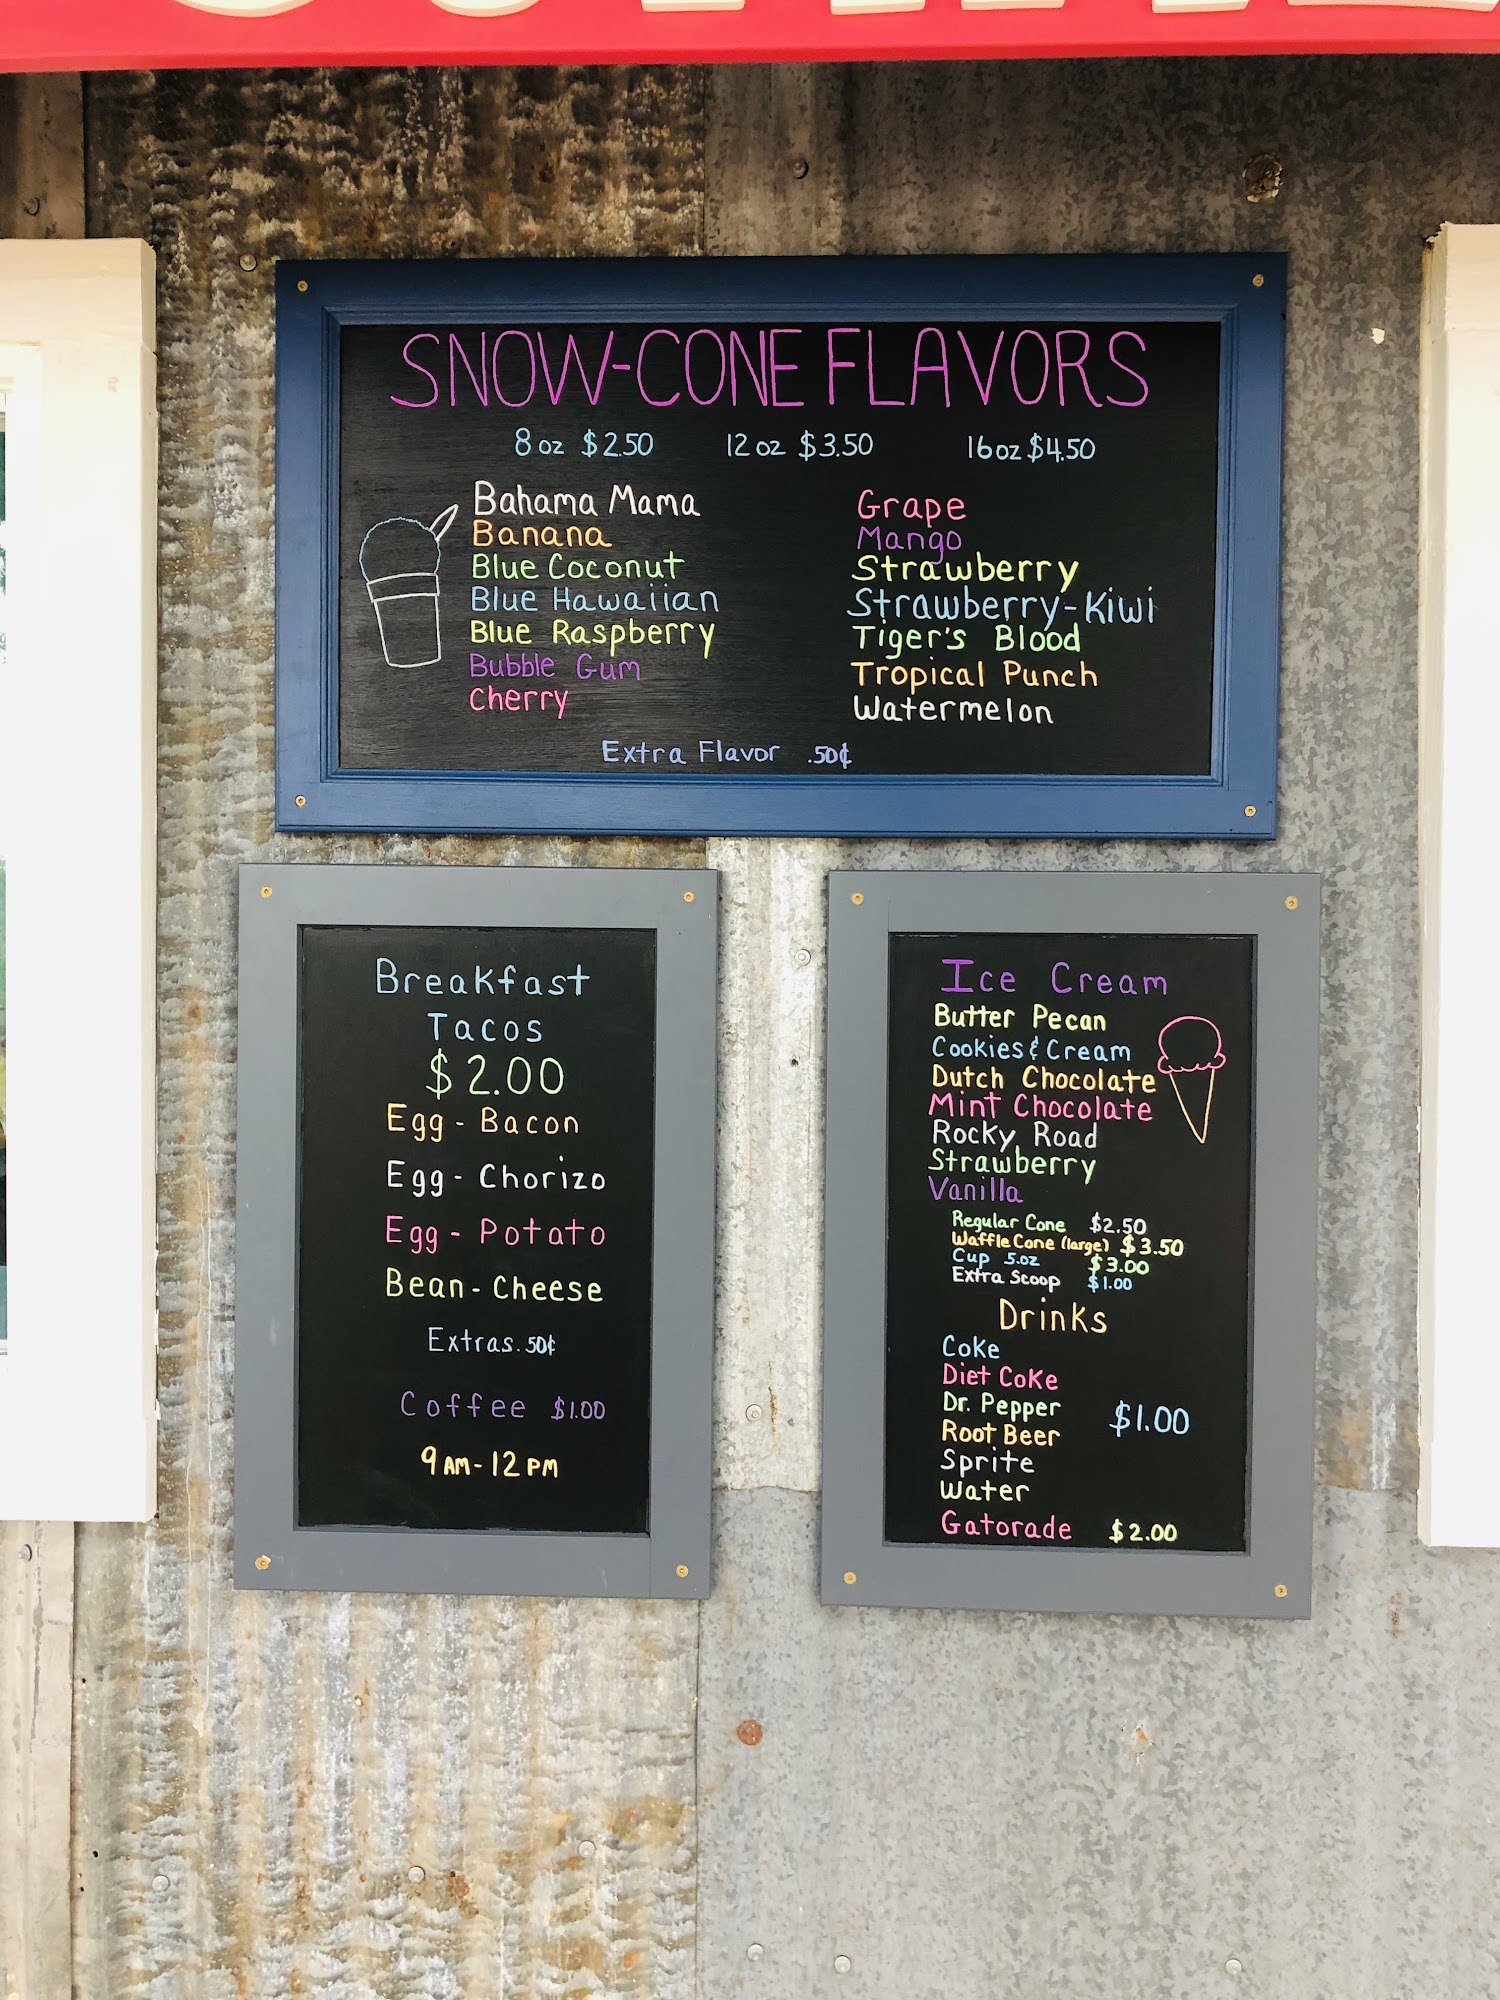 SNOW-CONE FLAVORS
8 oz $2.50 12 oz $3.50 16 oz $4.50
Bahama Mama
Banana
Blue Coconut
Blue Hawaiian
Blue Raspberry
Bubble Gum
Cherry
Grape
Mango
Strawberry
Strawberry-Kiwi
Tiger's Blood
Tropical Punch
Watermelon
Extra Flavor .50¢
Breakfast
Tacos
$2.00
Egg - Bacon
Egg - Chorizo
Egg - Potato
Bean - Cheese
Extras .50¢
Coffee $1.00
9 AM - 12 PM
Ice Cream
Butter Pecan
Cookies & Cream
Dutch Chocolate
Mint Chocolate
Rocky Road
Strawberry
Vanilla
Regular Cone $2.50
Waffle Cone (large) $3.50
Cup 5.oz $3.00
Extra Scoop $1.00
Drinks
Coke
Diet Coke
Dr. Pepper
Root Beer
Sprite
Water
$1.00
Gatorade $2.00